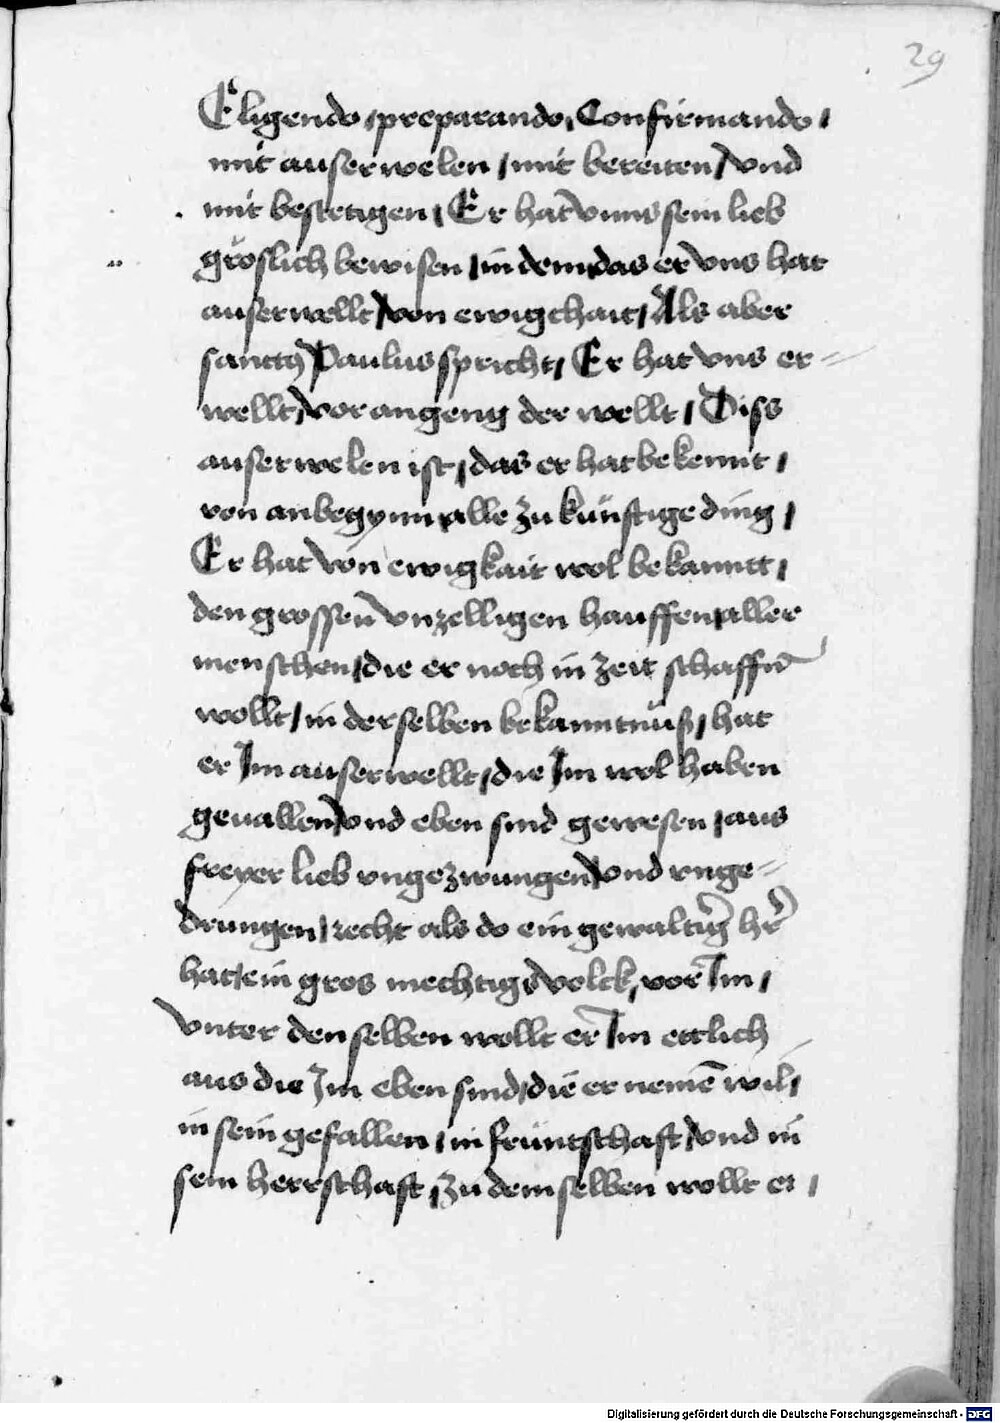 29
Eligendo / preparando / Confirmando /
mit auserwelen / mit bereiten / vnd
mit bestetigen / Er hat vnns sein lieb
gröslich bewisen / in dem das er vns hat
auserwellt / von ewigchait / Als aber
sanctus Paulus spricht / Er hat vns er=
wellt / vor angeng der wellt / Diss
auserwelen ist / das er hat bekennt /
von anbegynn alle zukünftige ding /
Er hat von ewigkait wol bekanntt /
den grossen vnzelligen hauffen aller
menschen / die er noch in zeit schaffn̄
wollt / in derselben bekanntnüß / hat
er Im auserwellt / die Im wol haben
geuallen / vnd eben sind gewesen / aus
freyer lieb vngezwungen / vnd vnge=
drungen / recht als do ein gewaltiḡ hr̄
hat / ein gros mechtigs volck / vor Im /
vnter den selben wollt er Im ettlich
aus die Im eben sind / die er nemē wil /
in sein gefallen / in früntschaft / vnd in
sein herrschaft / zu dem selben wollt er /
Digitalisierung gefördert durch die Deutsche Forschungsgemeinschaft - DFG